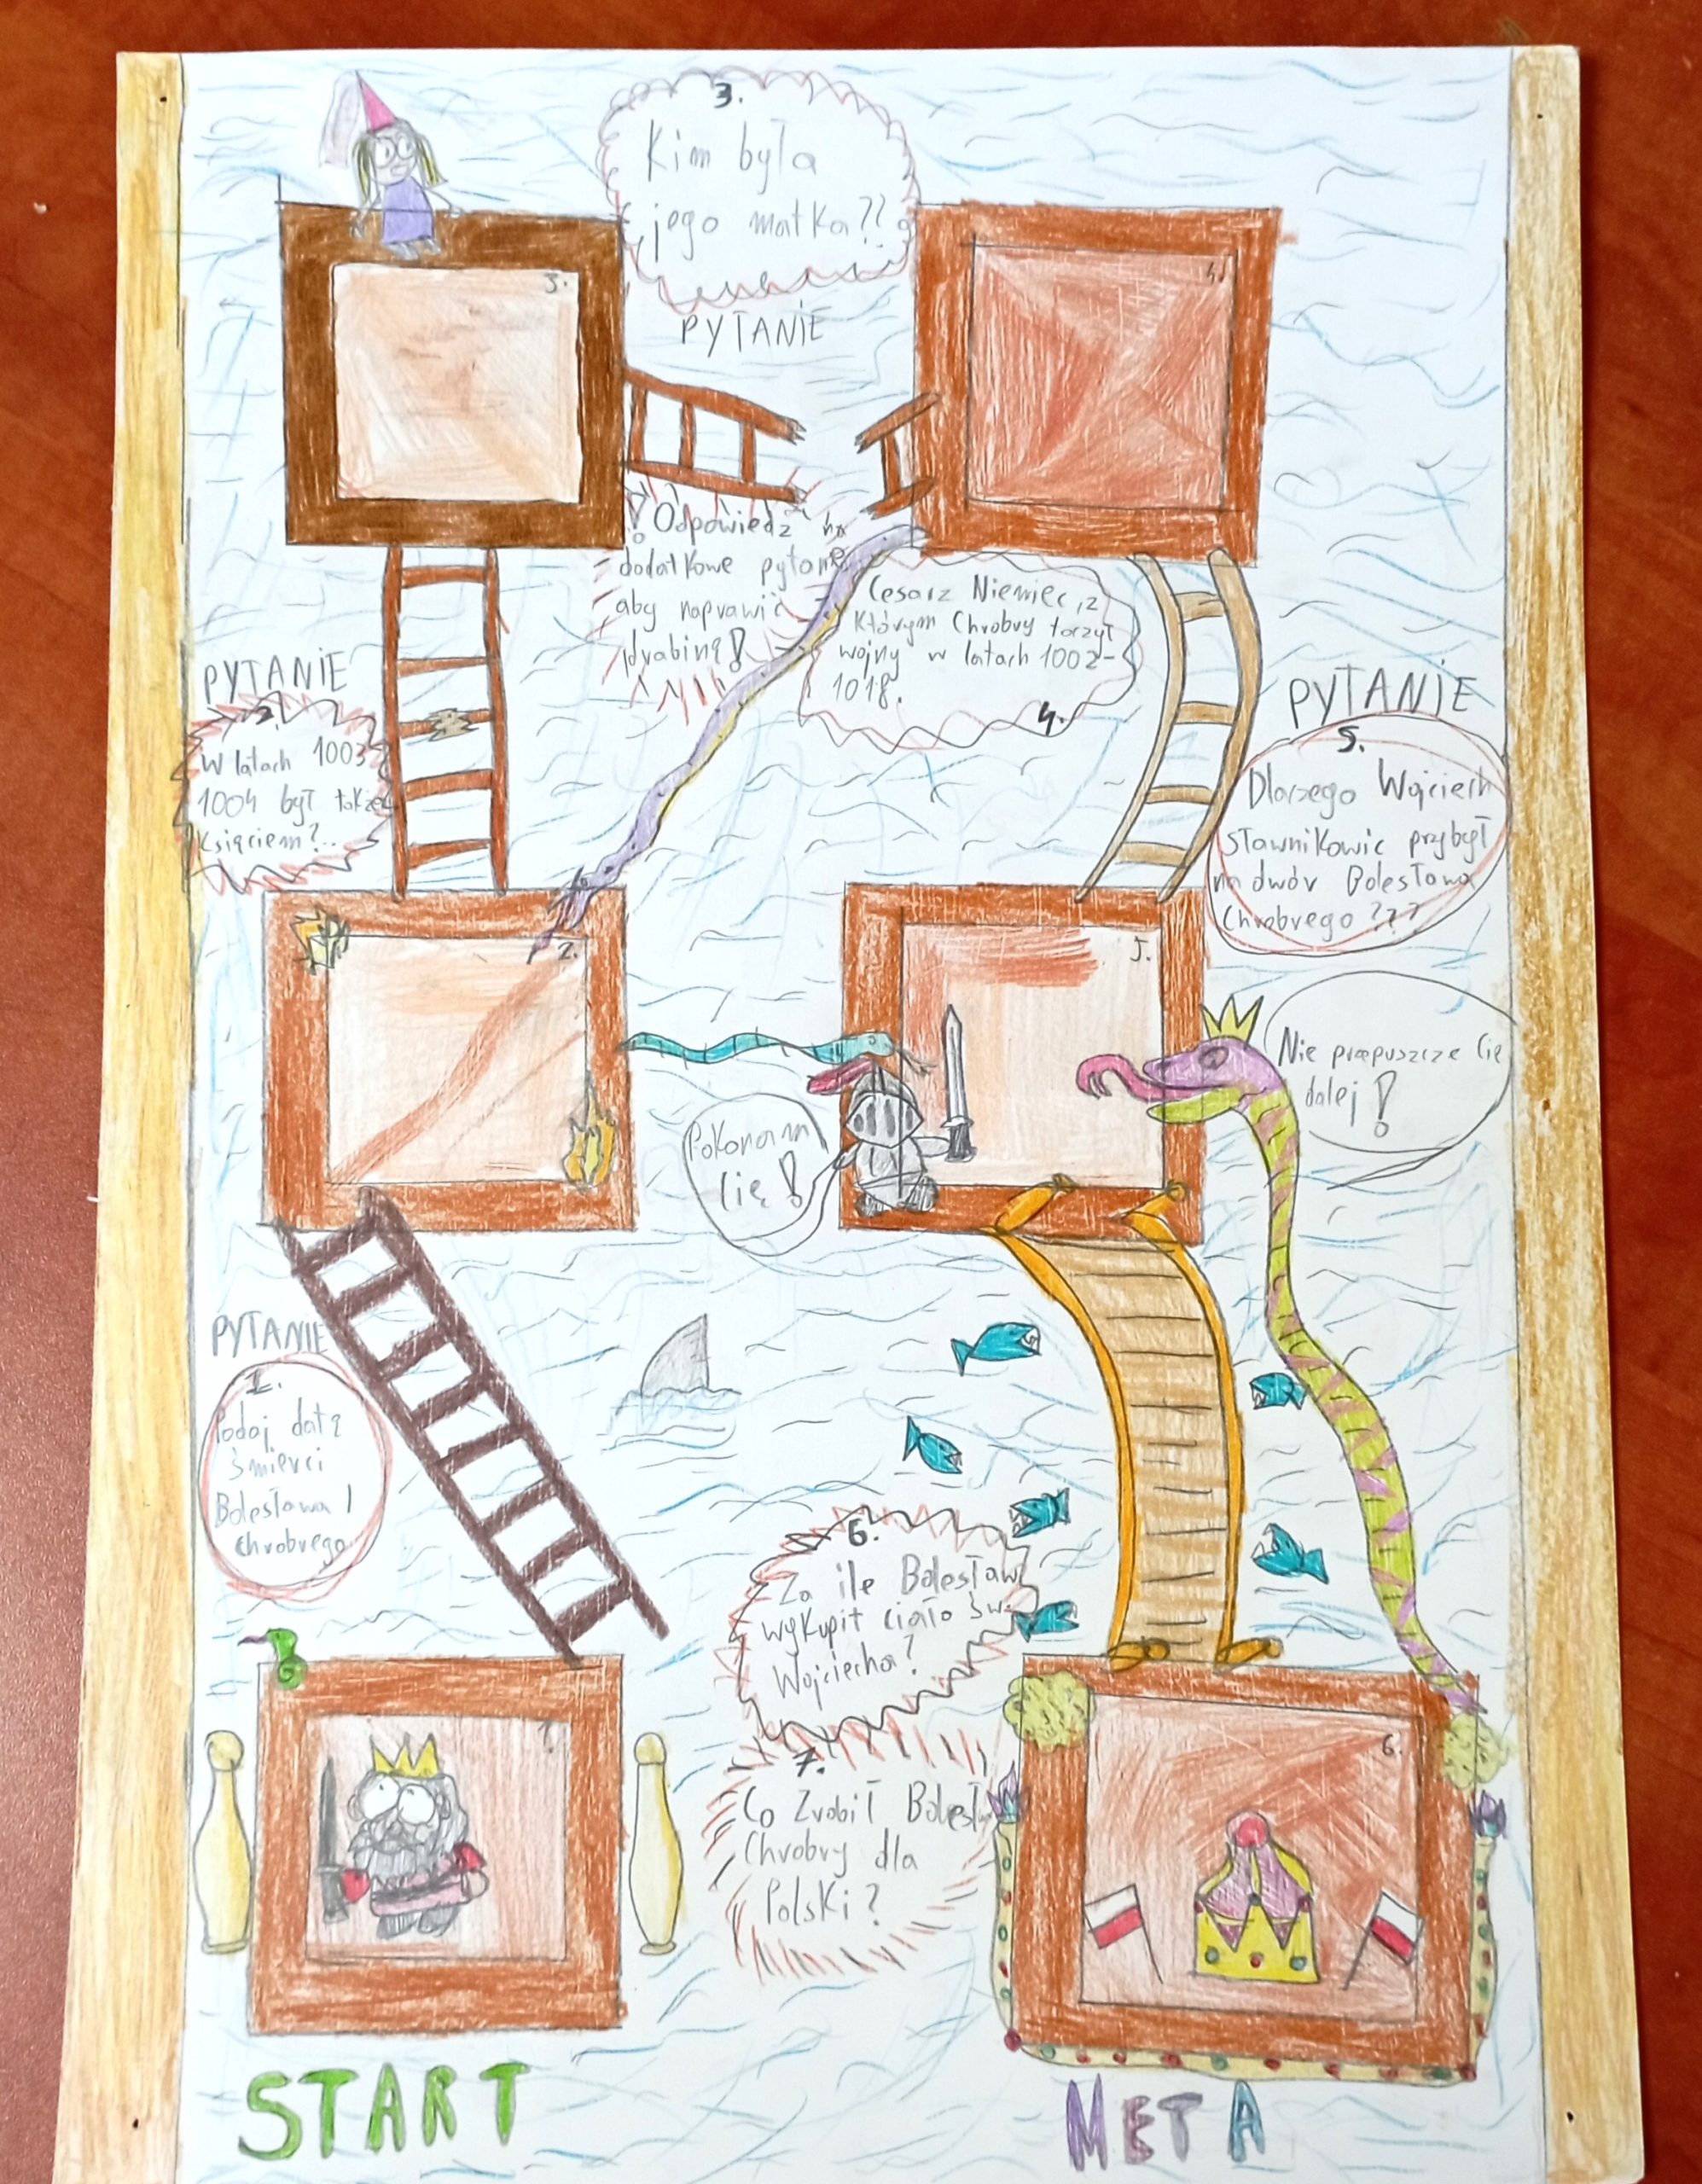 3.
Kim była
jego matka??
PYTANIE
3.
4.
! Odpowiedz na
dodatkowe pytanie
aby naprawić
drabinę!
Cesarz Niemiec, z
Którym Chrobry toczył
wojny w latach 1002-
1018.
4.
PYTANIE
2.
W latach 1003
1004 był także
Księciem?..
PYTANIE
5.
Dlaczego Wojciech
Sławnikowic przybył
na dwór Bolesława
Chrobrego ???
2.
5.
Nie przepuszcze Cię
dalej!
Pokonam
Cię!
PYTANIE
1.
Podaj datę
śmierci
Bolesława I
Chrobrego
6.
Za ile Bolesław
wykupił ciało Św.
Wojciecha?
7.
Co Zrobił Bolesław
Chrobry dla
Polski?
1.
6.
START
META